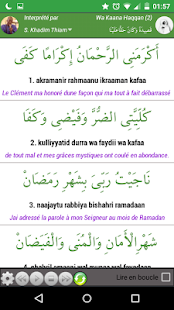 01:57
Interprété par
Wa Kaana Haqqan (2)
S. Khadim Thiam
أَكْرَمَنِي الرَّحْمَانُ إِكْرَامًا كَفَى
1. akramanir rahmaanu ikraaman kafaa
Le Clément m'a honoré dune façon qui ma tout à fait débarrassé
كُلِّيَّتِي الضُّرَّ وَفَيْضِي وَكَفَا
2. kulliyyatid durra wa faydii wa kafaa
de tout mal et mes grâces mystiques ont coulé en abondance.
نَاجَيْتُ رَبِّيَ بِشَهْرِ رَمَضَانْ
3. naajaytu rabbiya bishahri ramadaan
Jai adressé la parole à mon Seigneur au mois de Ramadan
شَهْرِ الْأَمَانِ وَالْمُنَى وَالْفَيَضَانْ
Lire en boucle